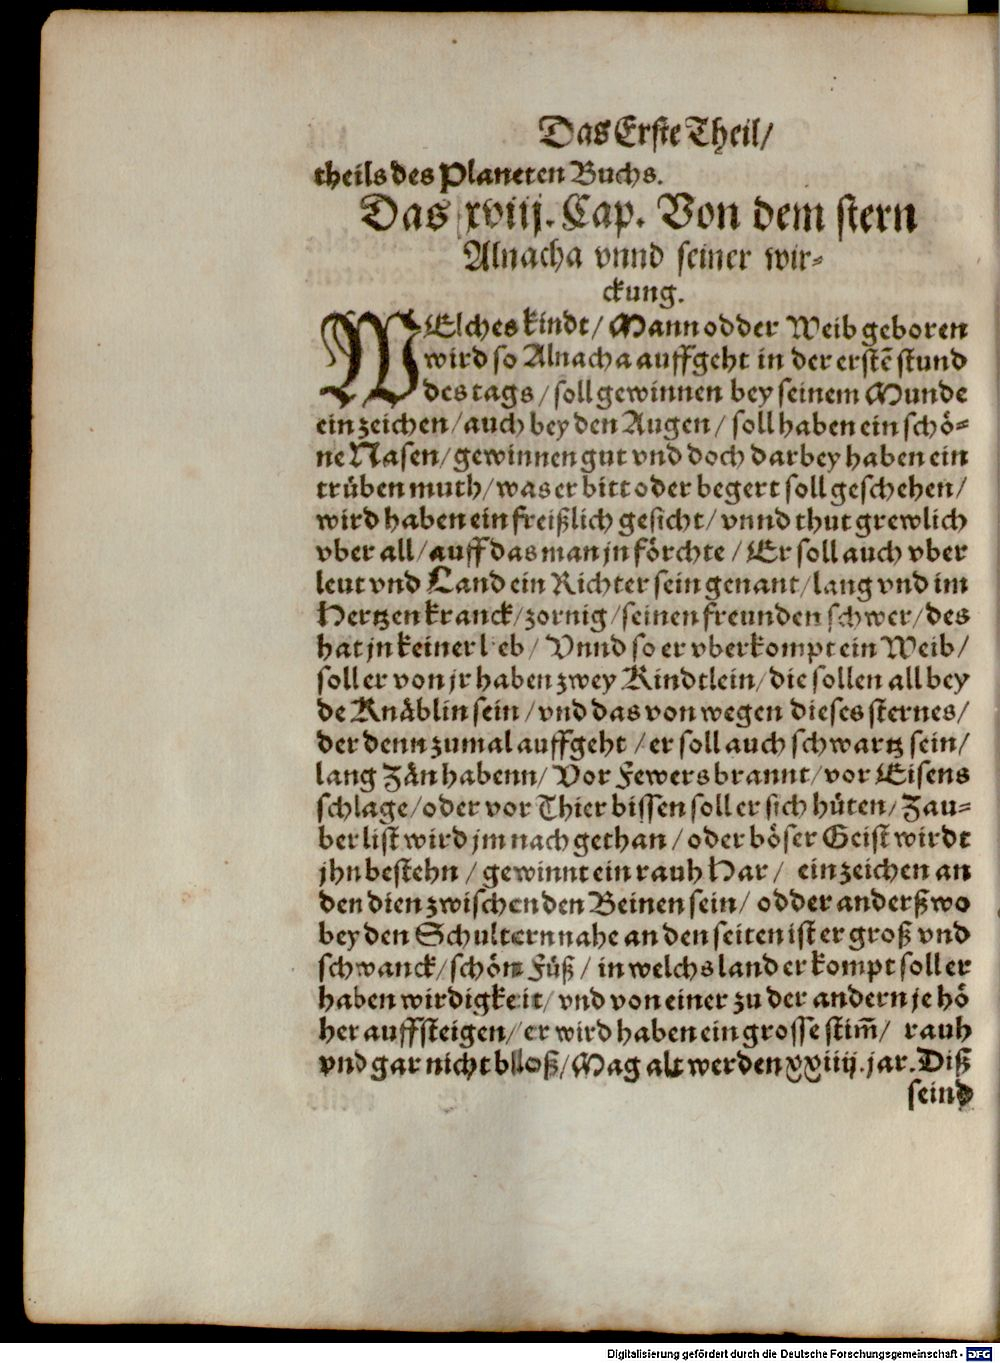 Das Erste Theil/
theils des Planeten Buchs.
Das xviij. Cap. Von dem stern
Alnacha vnnd seiner wir-
ckung.
WElches kindt/ Mann odder Weib geboren
wird so Alnacha auffgeht in der erstē stund
des tags/ soll gewinnen bey seinem Munde
ein zeichen/ auch bey den Augen/ soll haben ein schö-
ne Nasen/ gewinnen gut vnd doch darbey haben ein
trüben muth/ was er bitt oder begert soll geschehen/
wird haben ein freißlich gesicht/ vnnd thut grewlich
vber all/ auff das man jn förchte/ Er soll auch vber
leut vnd Land ein Richter sein genant/ lang vnd im
Hertzen kranck/ zornig/ seinen freunden schwer/ des
hat jn keiner l eb/ Vnnd so er vberkompt ein Weib/
soll er von jr haben zwey Kindtlein/ die sollen all bey
de Knäblin sein/ vnd das von wegen dieses sternes/
der denn zumal auffgeht/ er soll auch schwartz sein/
lang Zän habenn/ Vor Fewers brannt/ vor Eisens
schlage/ oder vor Thier bissen soll er sich hüten/ Zau-
ber list wird jm nach gethan/ oder böser Geist wirdt
jhn bestehn/ gewinnt ein rauh Har/ ein zeichen an
den dien zwischen den Beinen sein/ odder anderßwo
bey den Schultern nahe an den seiten ist er groß vnd
schwanck/ schön Füß/ in welchs land er kompt soll er
haben wirdigkeit/ vnd von einer zu der andern je hö
her auffsteigen/ er wird haben ein grosse stim̄/ rauh
vnd gar nicht bloß/ Mag alt werden xxiiij. jar. Diß
seind
Digitalisierung gefördert durch die Deutsche Forschungsgemeinschaft - DFG